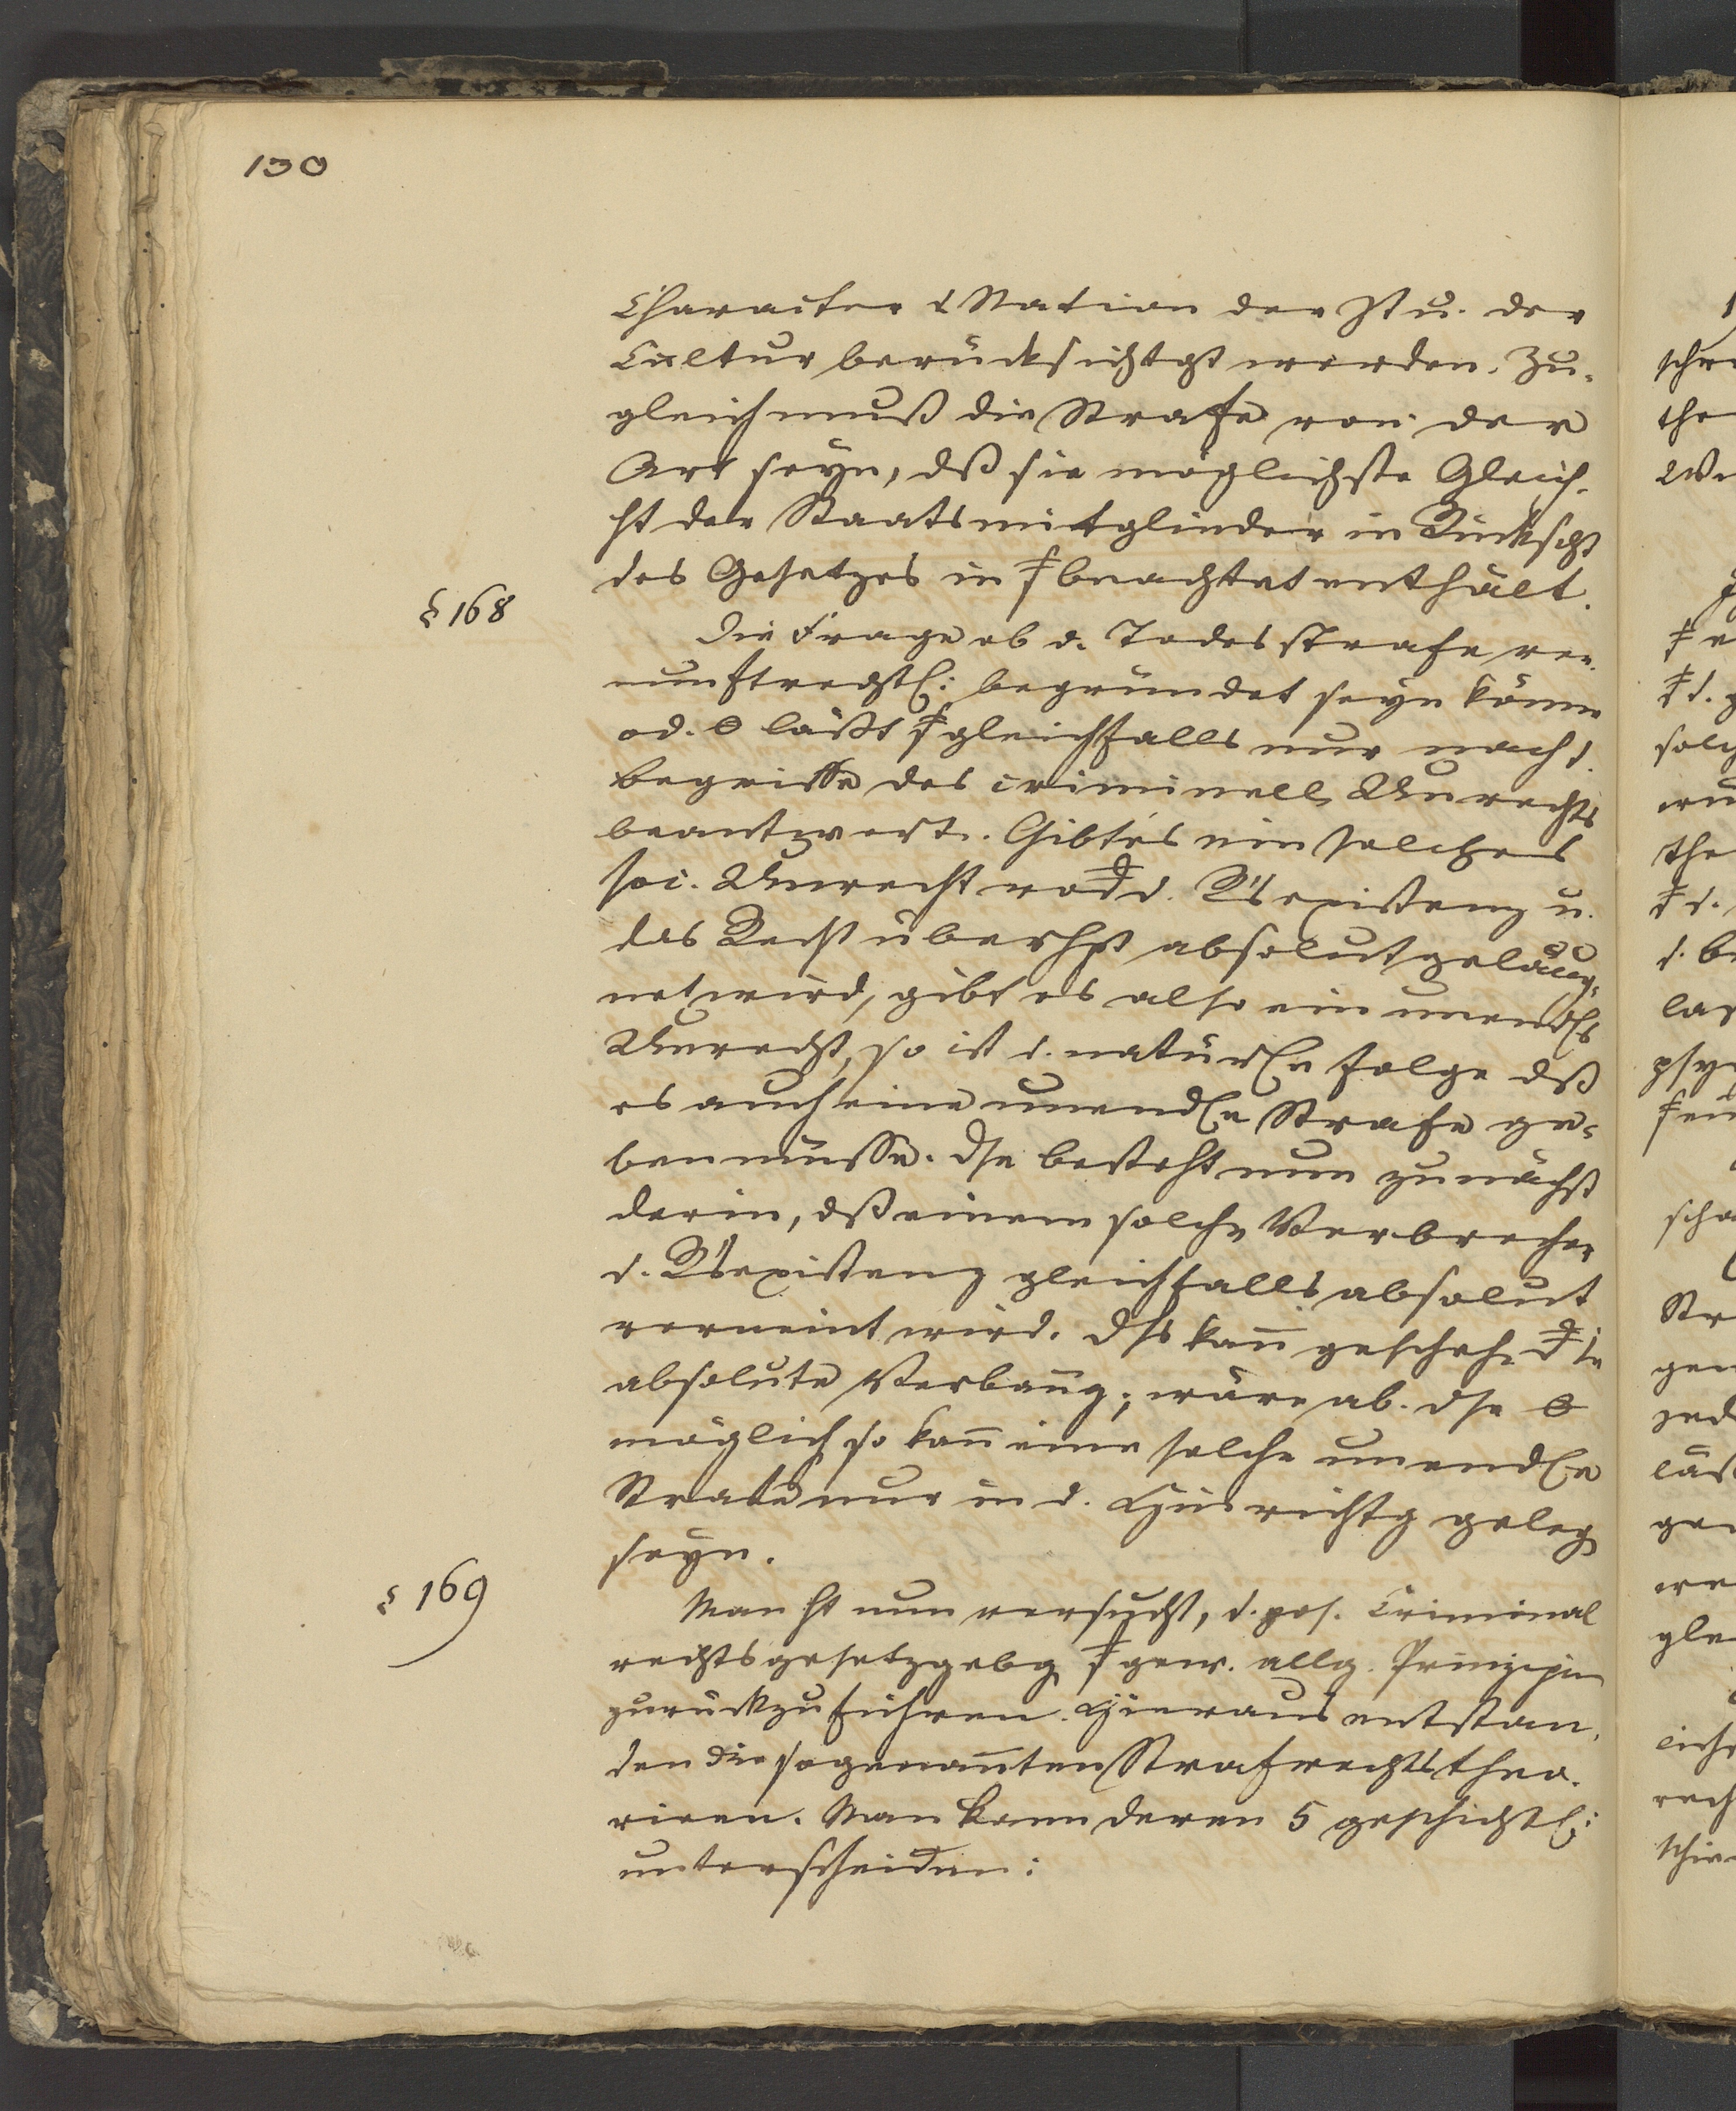 130
Character d Nation der Zt u. der
Cultur berücksichtgt werden. Zu-
gleich muß die Strafe von der
Art seyn, dß sie möglichste Gleich-
ht der Staatsmitglieder in Rücksicht
des Gesetzes in beachtet enthält.
§ 168
Die Frage ob d. Todesstrafe ver-
nunftrechtl: begründet seyn könne
od. läßt gleichfalls nur nach d.
begriffe des criminell Unrechts
beantwort. Gibt es ein solches
soc. Unrecht wo d. R's existenz u.
das Recht überhpt absolut geläug-
net wird, gibt es also ein unendls
Unrecht, so ist d. natürle folge dß
es auch eine unendle Strafe ge-
ben müsse. dse besteht nun zunächst
darin, dß einem solchn Verbrecher
d. R's existenz gleichfalls absolut
verneint wird. dſs kann geschehn
absolute Verbanng; wäre ab. dse
möglich so kann eine solche unendle
Strafe nur in d. Hinrichtg geleg
seyn.
§ 169
Man ht nun versucht, d. pos. Criminal
rechtsgesetzgebg gew. allg. Prinzipien
zurückzuführen. Hieraus entstan-
den die sogenannten Strafrechtstheo-
rieen. Man kann deren 5 geschichtl:
unterscheiden: